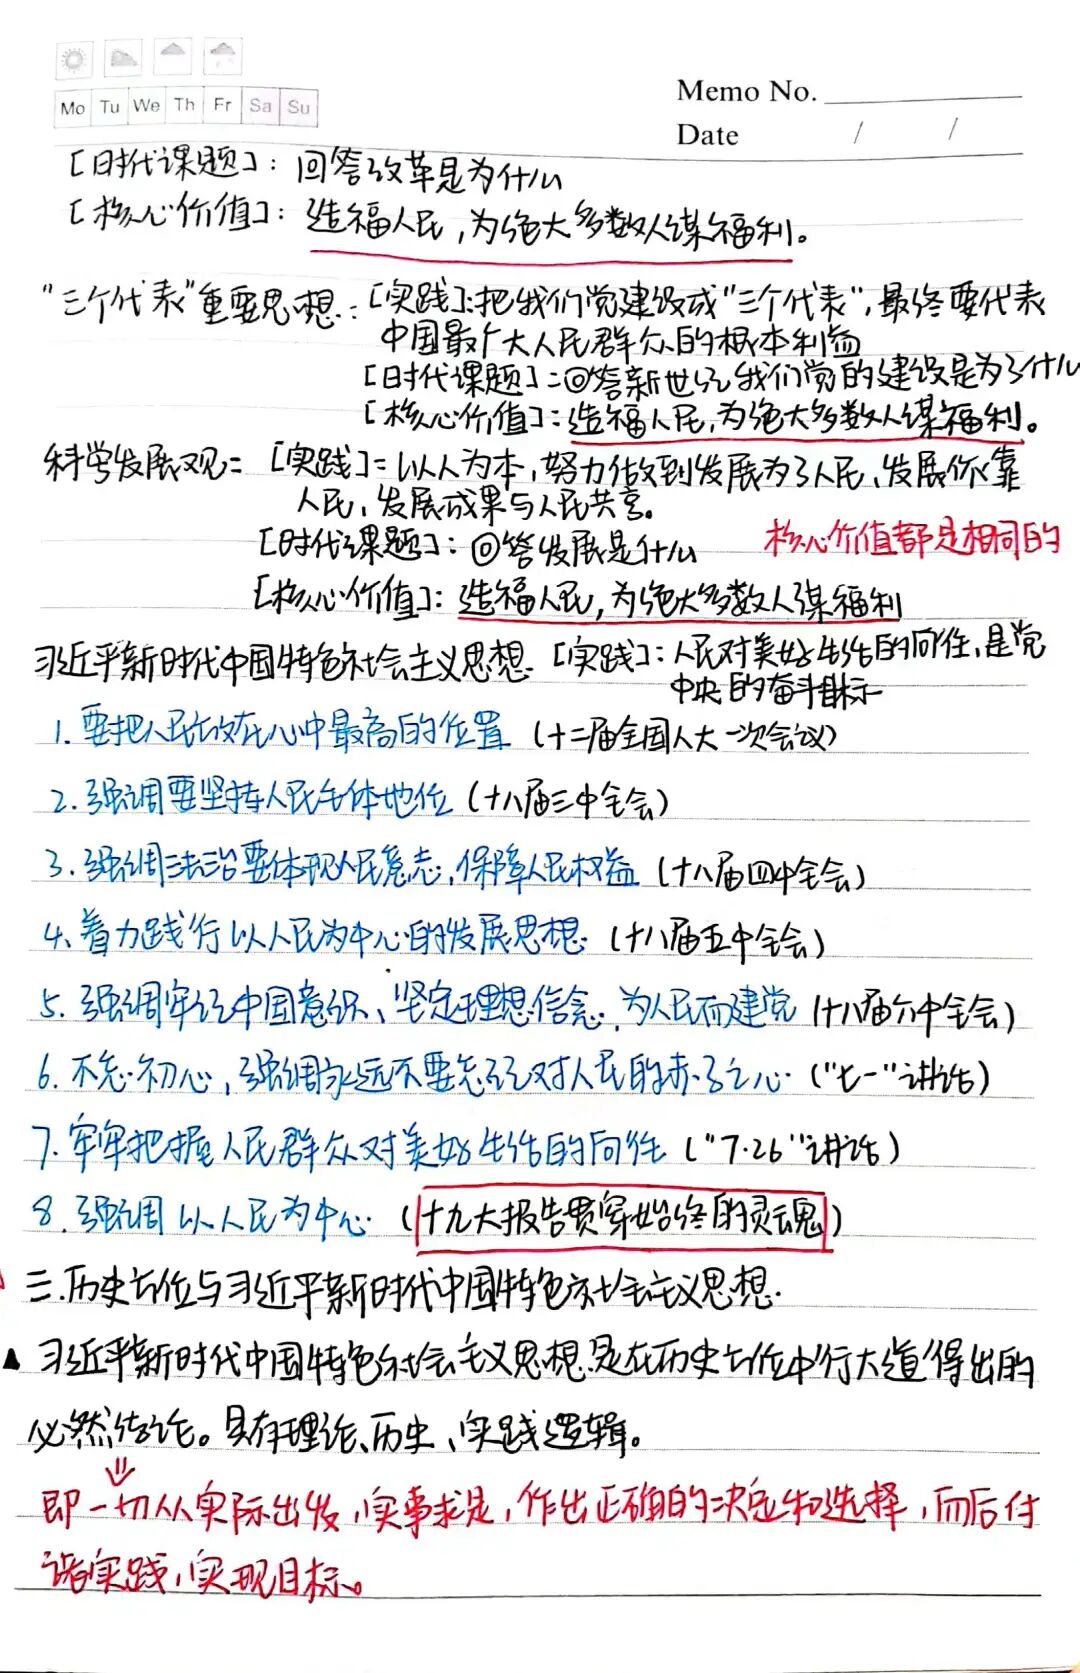 Mo Tu We Th Fr Sa Su
Memo No.
Date / /
[时代课题]：回答改革是为什么
[核心价值]：造福人民，为绝大多数人谋福利。
"三个代表"重要思想：[实践]：把我们党建设成"三个代表"，最终要代表
中国最广大人民群众的根本利益
[时代课题]：回答新世纪我们党的建设是为了什么
[核心价值]：造福人民，为绝大多数人谋福利。
科学发展观：[实践]：以人为本，努力做到发展为了人民，发展依靠
人民，发展成果与人民共享。
[时代课题]：回答发展是什么
核心价值都是相同的
[核心价值]：造福人民，为绝大多数人谋福利
习近平新时代中国特色社会主义思想.[实践]：人民对美好生活的向往，是党
中央的奋斗目标
1.要把人民放在心中最高的位置（十二届全国人大一次会议）
2.强调要坚持人民主体地位（十八届三中全会）
3.强调法治要体现人民意志，保障人民权益（十八届四中全会）
4、着力践行以人民为中心的发展思想.（十八届五中全会）
5.强调牢记中国意识、坚定理想信念，为人民而建党（十八届六中全会）
6.不忘初心，强调永远不要忘记对人民的赤子之心.（"七一"讲话）
7.牢牢把握人民群众对美好生活的向往（"7.26"讲话）
8.强调以人民为中心.（十九大报告贯穿始终的灵魂）
三.历史方位与习近平新时代中国特色社会主义思想.
▲习近平新时代中国特色社会主义思想是在历史方位中行大道得出的
必然结论。具有理论、历史、实践逻辑。
即一切从实际出发，实事求是，作出正确的决定和选择，而后付
诸实践，实现目标。